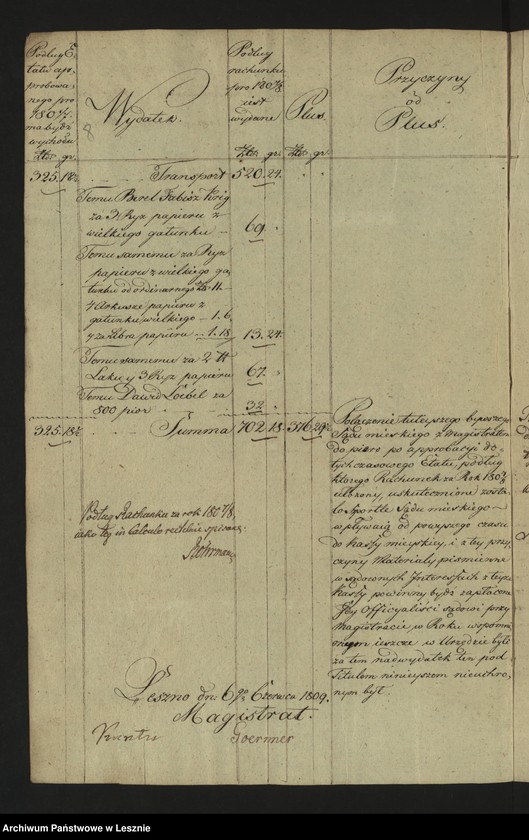 Podług E-
tatu ap-
probowa-
nego pro
180 6/7.
ma bydź
wychodu
Złtr. gr.
Wydatek.
8
Podług
rachunku
pro 180 7/8
jest
wydane
Złtr. gr.
Plus.
Złtr. gr.
Przyczyny
od
Plus.
325. 18
Transport
520. 24.
Temu Berel Fabisz Krig
za 3 Ryz papieru z
wielkiego gatunku —
60.
Temu samemu za Ryz
papieru z wielkiego ga-
tunku od ordinarnego
4 Arkusze papieru z
gatunku wielkiego — 1. 6.
y za Libra papieru — 1. 18.
13. 24.
Temu samemu za 2 ℔
Laku y 3 Ryz papieru
67.
Temu Dawid Loebel za
800 pior
32
325. 18
Summa
702. 18.
376. 29
Połączenie tuteyszego byłego
Sądu mieskiego z Magistratem
do piero po approbacyi do-
tychczasowego Etatu, podług
ktorego Rachunek za Rok 180 7/8
ułożony, uskutecznione zosta-
ło Sportle Sądu mieskiego
wpływaią od powyszego czasu
do Kassy mieyskiey, i z tey przy-
czyny Materiały piśmienne
w sądownych Interessach z teyze
Kassy powinny bydź zapłacone
Gdy Officyaliści sądowi przy
Magistracie w Roku wspomni-
onym ieszcze w Urzędzie byli
za tem nadwydatek ten pod
Titulem nineyszem nieuchro-
nym był.
Podług Rachunku za rok 180 7/8,
iako też in Calculo rzetelnie spisano.
Leszno dn. 6 go Czerwca 1809.
Magistrat.
Goermer
Archiwum Państwowe w Lesznie